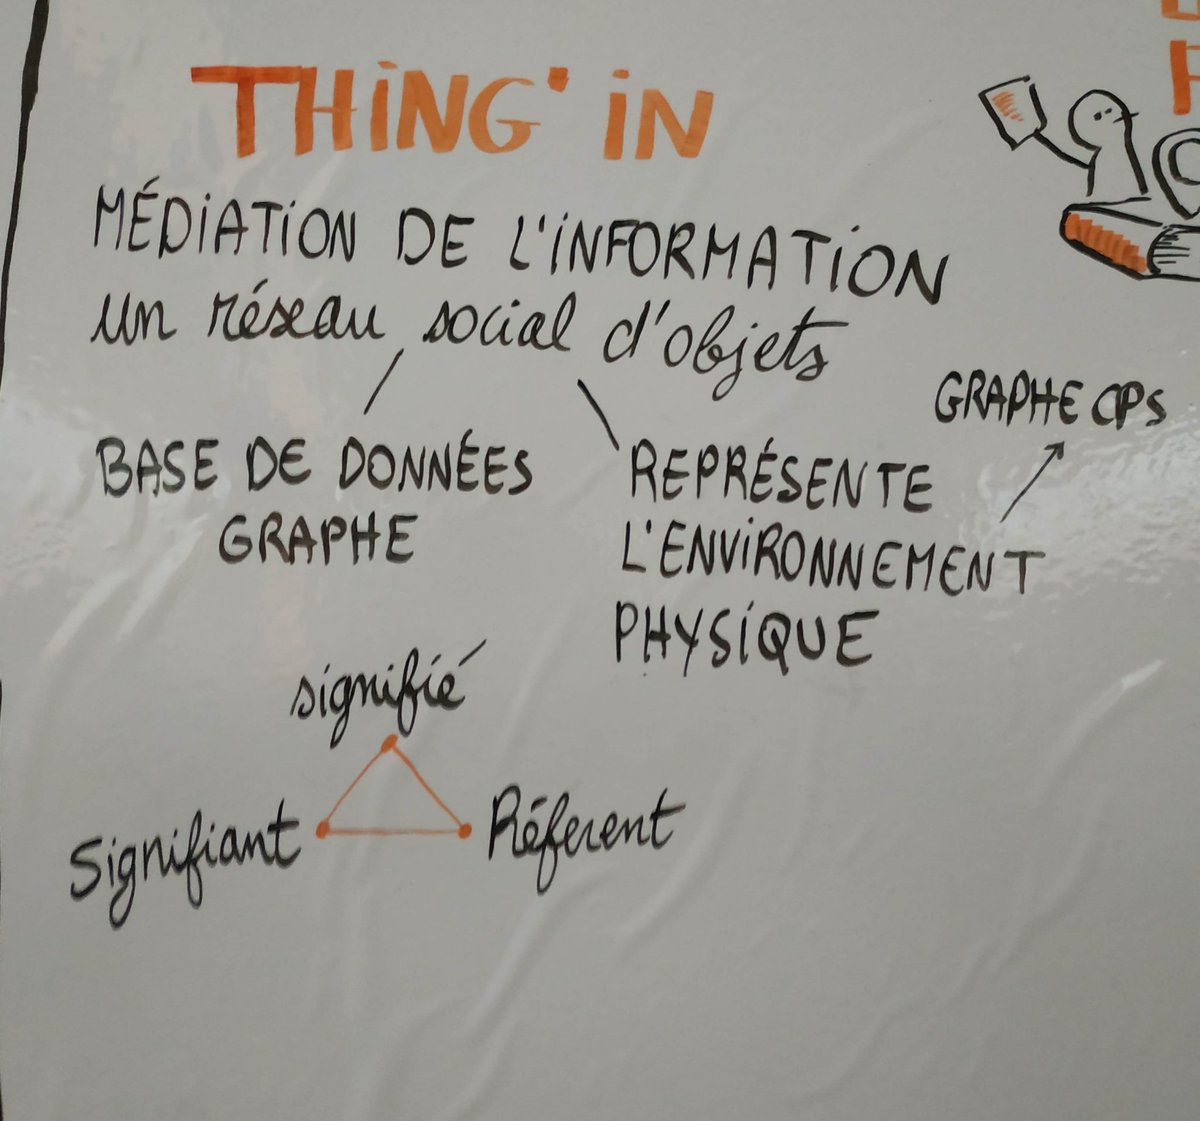 THING' IN
MÉDIATION DE L'INFORMATION
un réseau social d'objets
GRAPHE CPS
BASE DE DONNÉES
GRAPHE
REPRÉSENTE
L'ENVIRONNEMENT
PHYSIQUE
signifié
Signifiant
Réferent